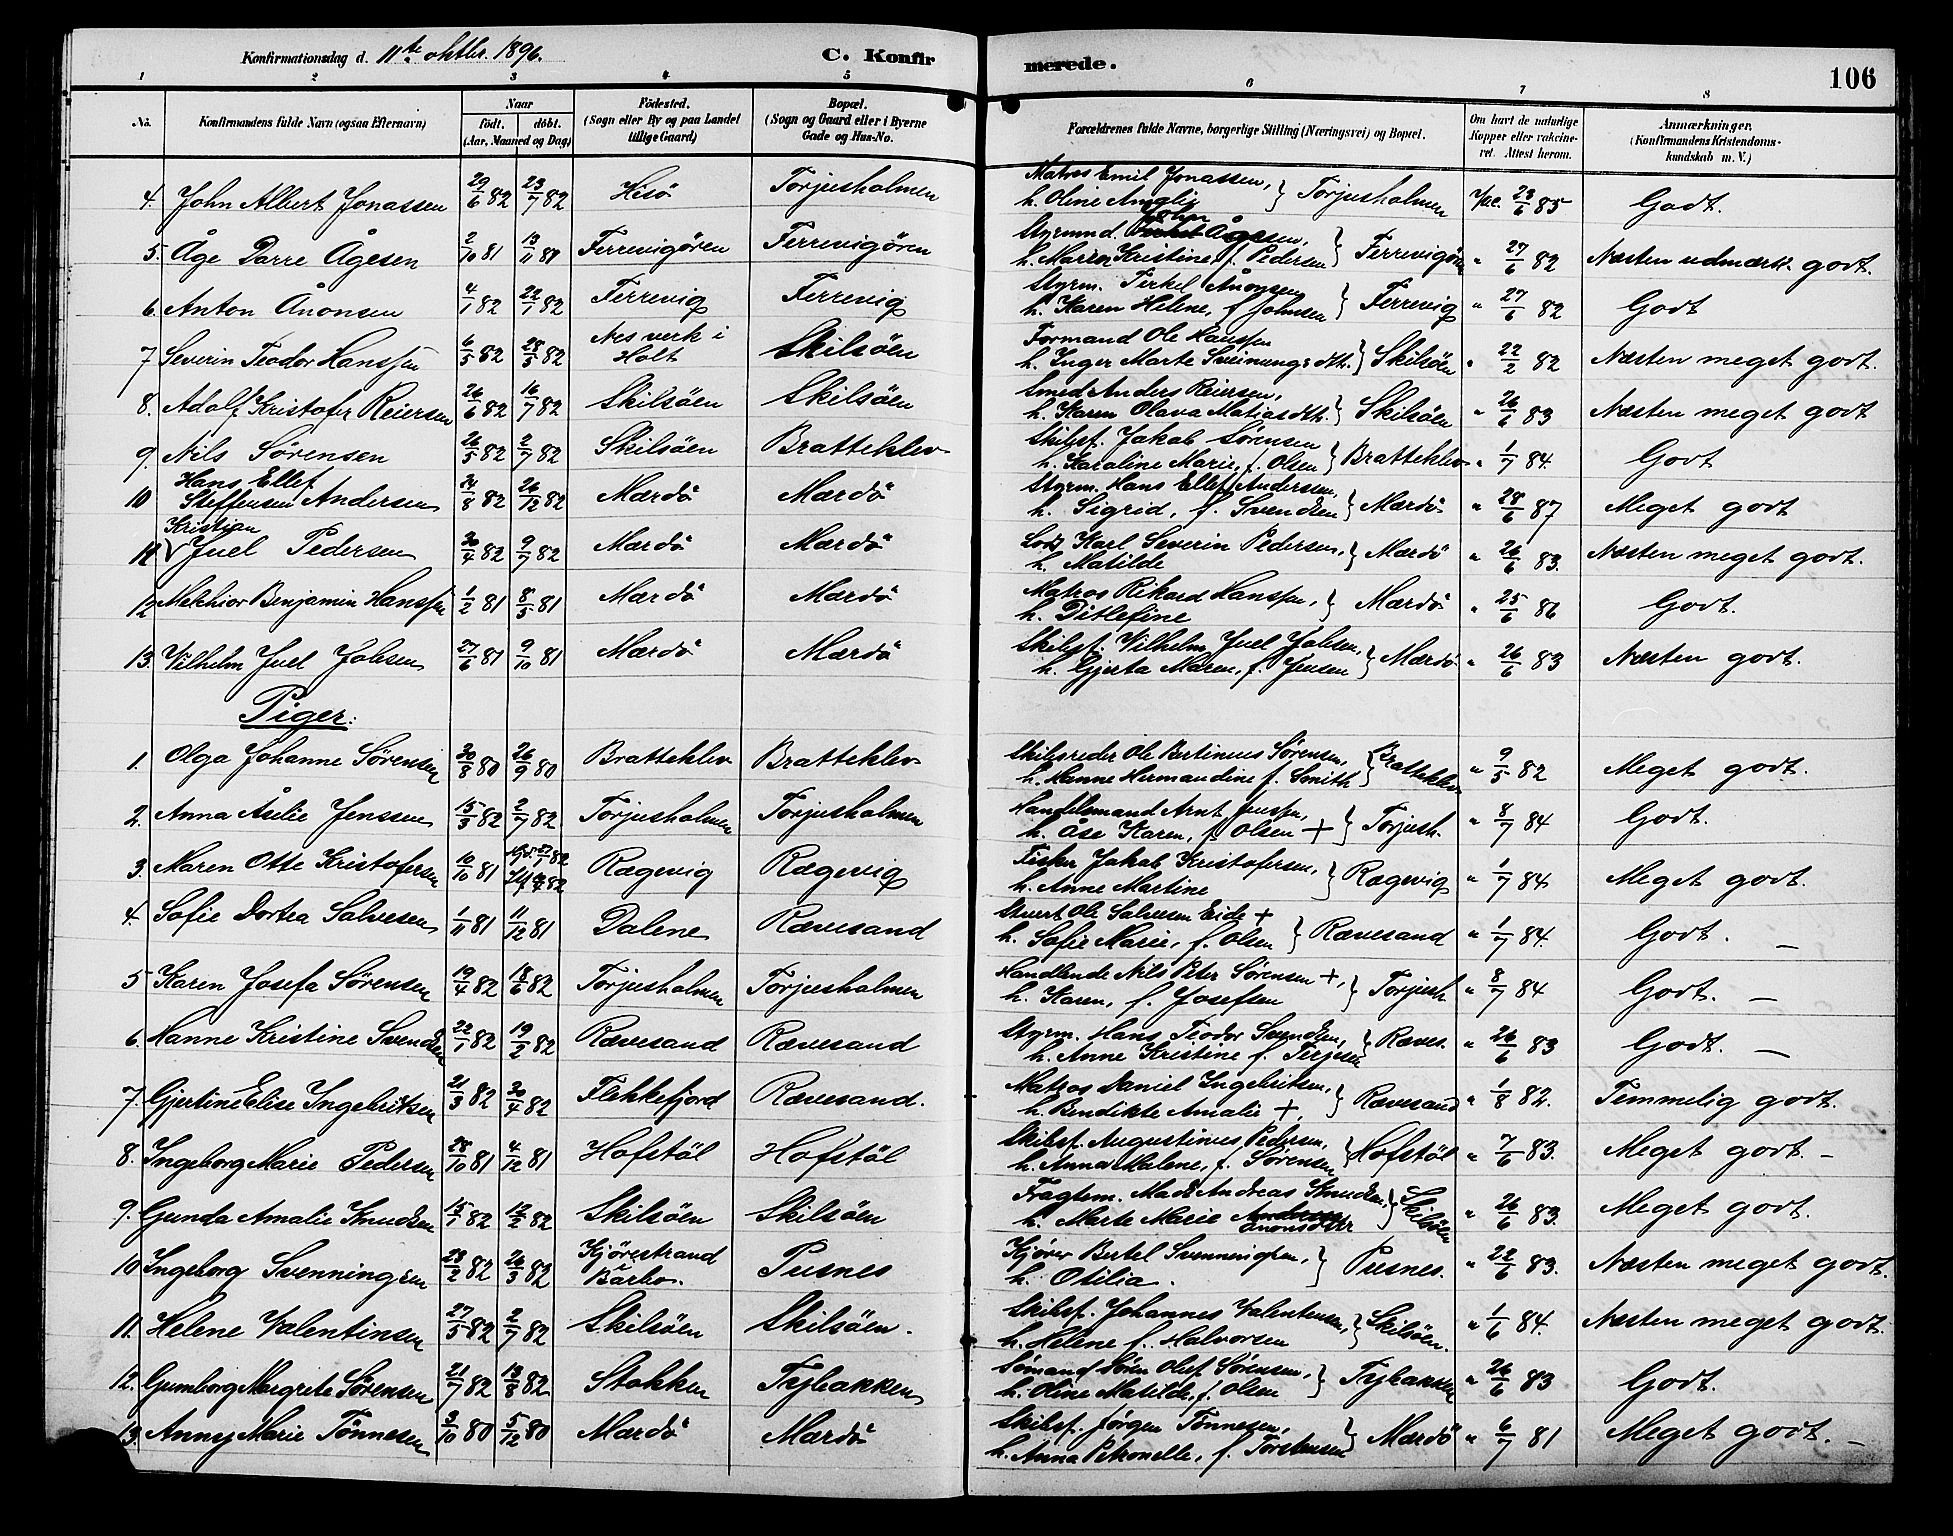 Konfirmationsdag d. 11te oktbr. 1896. C. Konfirmerede. 106
1 2 3 4 5 6 7 8
No. Konfirmandens fulde Navn (ogsaa Efternavn) Naar født. døbt. (Aar, Maaned og Dag) Fødested. (Sogn eller By og paa Landet tillige Gaard) Bopæl. (Sogn og Gaard eller i Byerne Gade og Hus-No. Forældrenes fulde Navne, borgerlige Stilling (Næringsvei) og Bopæl. Om havt de naturlige Kopper eller vakcineret. Attest herom. Anmærkninger. (Konfirmandens Kristendomskundskab m. V.)
4. John Albert Jonassen 29/6 82 23/7 82 Hisö Torjusholmen Matros Emil Jonassen, h. Oline Amalie } Torjusholmen 23/6 85 Godt.
5. Åge Dorre Ågesen 2/10 81 13/11 81 Færrevigören Færrevigören Styrmnd. John Ågesen, h. Maren Kristine, f. Pedersen } Færrevigören " 27/6 82 Næsten udmærk. godt.
6. Anton Ånonsen 4/1 82 22/1 82 Færrevig Færrevig Styrm. Terkel Ånonsen h. Karen Helene, f. Johnsen } Færrevig " 27/6 82 Godt
7 Severin Teodor Hanssen 6/5 82 28/5 82 Nes verk i Holt Skilsöen Formand Ole Hanssen h. Inger Marte Sveinungsdtt. } Skilsöen " 22/2 82 Næsten meget godt.
8. Adolf Kristofer Reiersen 26/6 82 16/7 82 Skilsöen Skilsöen Smed Anders Reiersen, h. Karen Olava Matiasdtt. } Skilsöen " 26/6 83 Næsten meget godt
9. Nils Sørensen 26/5 82 2/7 82 Skilsöen Bratteklev Skibsf. Jakob Sørensen h. Karoline Marie, f. Olsen } Bratteklev " 1/7 84. Godt
10 Hans Ellef Steffensen Andersen 24/8 82 26/12 82 Mærdö Mærdö Styrm. Hans Ellef Andersen, h. Sigrid, f. Svendsen } Mærdö " 28/6 87 Meget godt
11 Kristian Juel Pedersen 30/4 82 9/7 82 Mærdö Mærdö Lods Karl Severin Pedersen, h. Matilde } Mærdö " 26/6 83. Næsten meget godt.
12 Melchior Benjamin Hanssen 1/2 81 8/5 81 Mærdö Mærdö Matros Rikard Hanssen, h. Ditlefine } Mærdö " 25/6 86 Godt.
13. Vilhelm Juel Jahsen 27/6 81 9/10 81 Mærdö Mærdö Skibsf. Vilhelm Juel Jahsen, h. Gjerta Maren, f. Jensen } Mærdö " 26/6 83 Næsten godt.
Piger:
1. Olga Johanne Sørensen 30/8 80 26/9 80 Bratteklev Bratteklev Skibsreder Ole Bertinius Sørensen, h. Hanne Hermandine f. Smith } Bratteklev " 9/5 82 Meget godt.
2. Anna Åselie Jenssen 15/3 82 2/7 82 Torjusholmen Torjusholmen Handelsmand Arnt Jenssen, h. Åse Karen, f. Olsen + } Torjush. " 8/7 84 Godt.
3. Maren Otte Kristofersen 10/10 81 Rægevig Rægevig Fisker Jakob Kristofersen, h. Anne Martine } Rægevig " 1/7 84 Meget godt.
4. Sofie Dortea Salvesen 1/11 81 11/12 81 Dalene Rævesand Stuert Ole Salvesen Eide + h. Sofie Marie, f. Olsen } Rævesand " 1/7 84. Godt. –
5 Karen Josefa Sørensen 19/4 82 18/6 82 Torjusholmen Torjusholmen Handlende Nils Peter Sørensen +, h. Karen, f. Josefsen } Torjush " 8/7 84 Godt. –
6. Hanne Kristine Svendsen 22/1 82 19/2 82 Rævesand Rævesand Styrm. Hans Teodor Svendsen, h. Anne Kristine f. Terjesen } Ræves. " 26/6 83 Godt. –
7. Gjertine Elise Ingebritsen 21/3 82 30/4 82 Flekkefjord Rævesand. Matros Daniel Ingebritsen, h. Bendikte Amalie +, } Rævesand " 1/8 82. Temmelig godt.
8. Ingeborg Marie Pedersen 28/10 81 4/12 81 Hofstöl Hofstöl Skibsf. Augustinus Pedersen, h. Anna Malene, f. Sørensen } Hofstöl " 7/6 83. Meget godt. –
9. Gunda Amalie Knudsen 15/1 82 12/2 82 Skilsöen Skilsöen Fragtem. Mads Andreas Knudsen, h. Marte Marie Ånonsdtr } Skilsöen " 26/6 83. Meget godt.
10 Ingeborg Svenningsen 23/2 82 26/3 82 Kjörestrand Barbo. Pusnes Kjörer Bertel Svenningsen, h. Otilia. } Pusnes. " 22/6 83. Næsten meget godt.
11. Helene Valentinsen 27/5 82 2/7 82 Skilsöen Skilsöen. Skibsf. Johannes Valentinsen, h. Helene f. Halvorsen } Skilsöen. " 1/6 84. Næsten meget godt.
12. Gumborg Margrete Sørensen 21/7 82 13/8 82 Stokken Tejbakken Sömand Søren Oluf Sørensen, h. Oline Matilde, f. Olsen } Tejbakken " 26/6 83 Godt.
13. Anny Marie Tönnesen 3/10 80 5/12 80 Mærdö Mærdö Skibsf. Jørgen Tönnesen, h. Anna Petronelle, f. Torstensen } Mærdö " 6/7 81 Meget godt. –